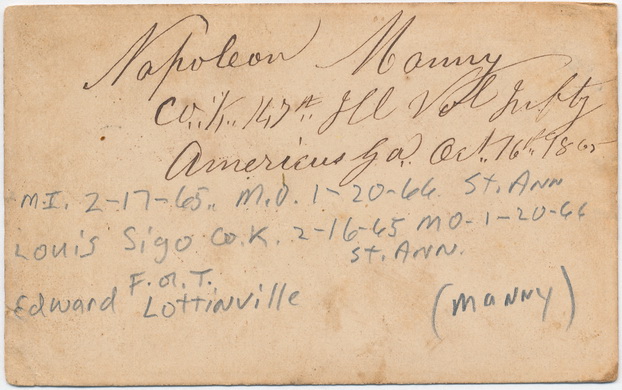 Napoleon Manny
Co. K. 147th Ill Vol Infty
Americus Ga. Oct. 16th 1865
M.I. 2-17-65. M.O. 1-20-66 St. Ann
Louis Sigo Co. K. 2-16-65 MO. 1-20-66
St. ANN.
F. or T.
Edward Lottinville
(MANNY)